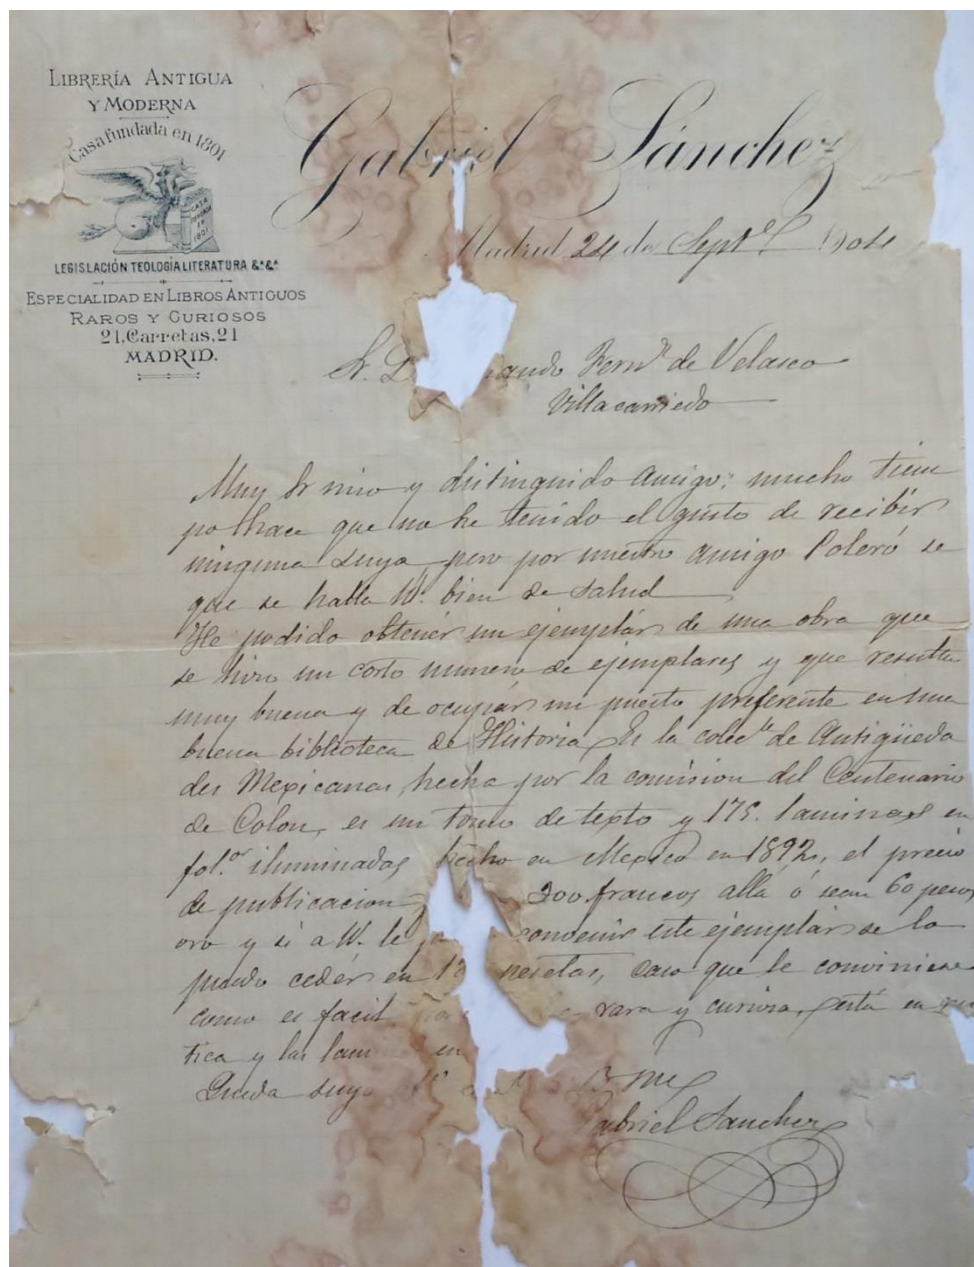 LIBRERÍA ANTIGUA
Y MODERNA
Casa fundada en 1801
CASA FUNDADA EN 1801
LEGISLACIÓN TEOLOGÍA LITERATURA &ª &ª
ESPECIALIDAD EN LIBROS ANTIGUOS
RAROS Y CURIOSOS
21, Carretas, 21
MADRID.
Gabriel Sánchez
Madrid 24 de Septe
Sr. D ando Fernz de Velasco
Villacarriedo
Muy Sr mio y distinguido amigo: mucho tiem
po hace que no he tenido el gusto de recibir
ninguna suya pero por nuestro amigo Poleró se
que se halla V. bien de salud
He podido obtener un ejemplar de una obra que
se hizo un corto numero de ejemplares, y que resulta
muy buena y de ocupar un puesto preferente en una
buena biblioteca de Historia, Es la colecn de Antigüeda
des Mexicanas, hecha por la comision del Centenario
de Colon, es un tomo de testo y 175. laminas en
fol.or iluminadas hecho en Mexico en 1892, el precio
de publicacion 300 francos allá ó sean 60 pesos
oro y si a V. le convenir este ejemplar se lo
puedo ceder en pesetas, caso que le conviniese
como es facil rara y curiosa, está en rus
tica y las lam
Queda suyo
Gabriel Sanchez